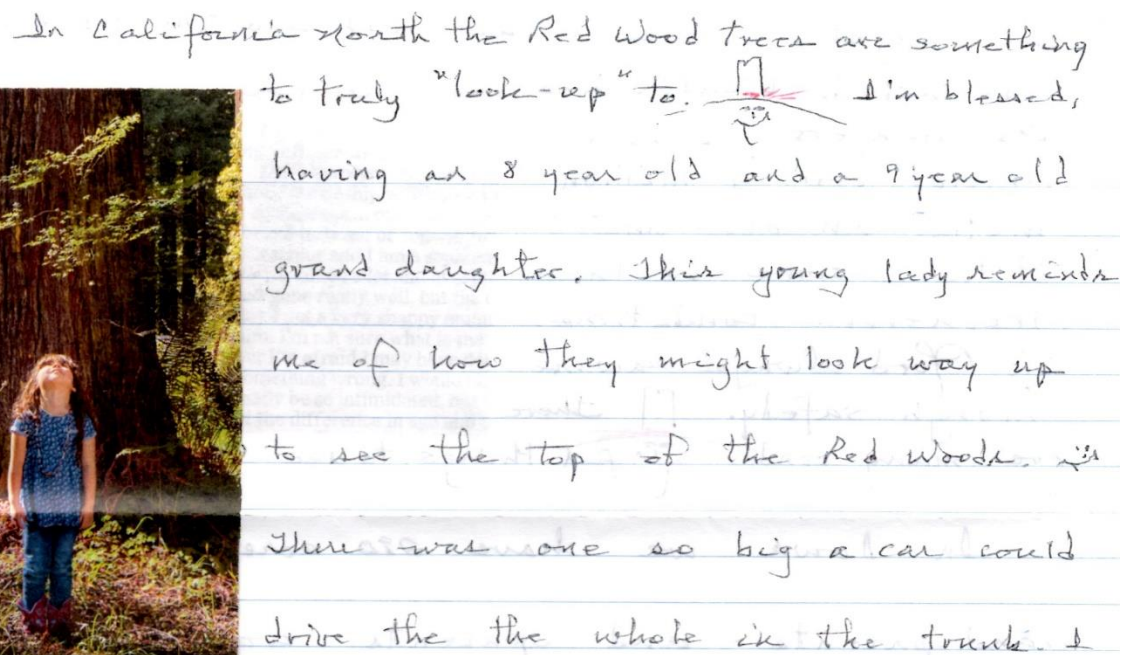 In California north the Red Wood Trees are something
to truly "look-up" to. I'm blessed,
having an 8 year old and a 9 year old
grand daughter. This young lady reminds
me of how they might look way up
to see the top of the Red Woods.
There was one so big a car could
drive the the whole in the trunk. I